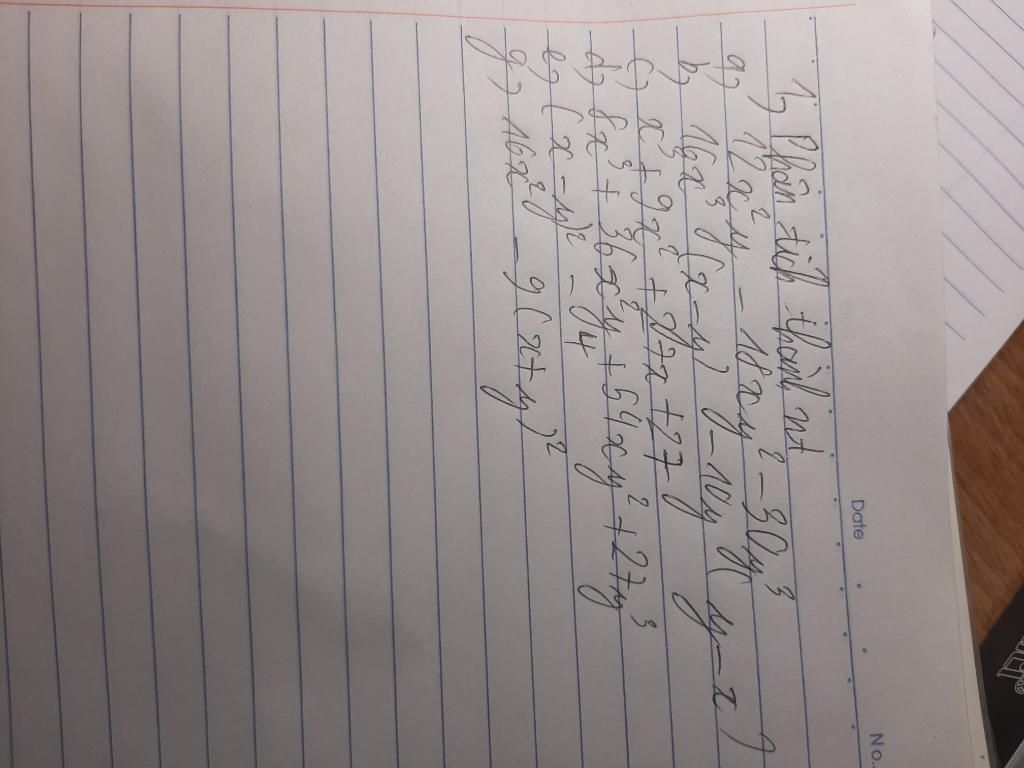 Date
No.
1, Phân tích thành nt
a, 12x²y - 18xy² - 30y³
b, 16x³(x-y) - 10y(y-x)
c, x³ + 9x² + 27x + 27
d, 8x³ + 36x²y + 54xy² + 27y³
e, (x-y)² - 4
g, 16x² - 9(x+y)²